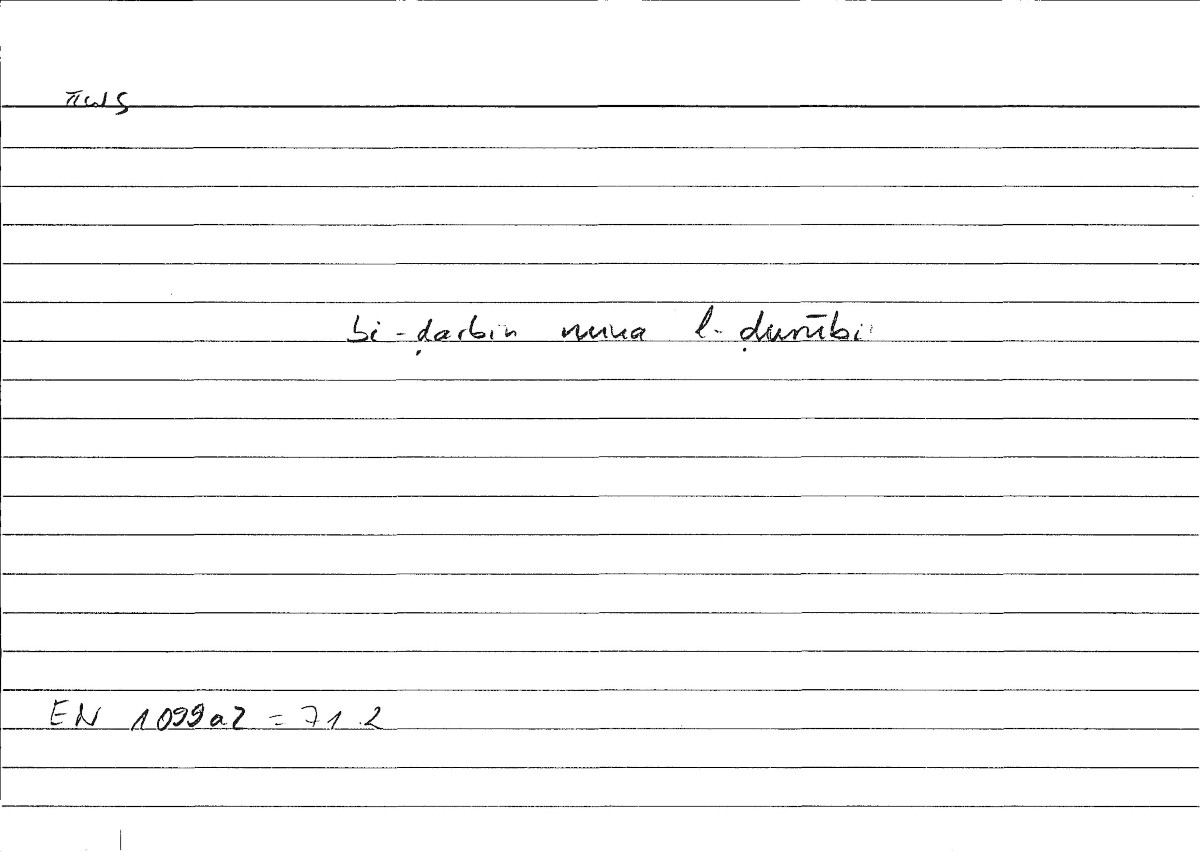 πως
bi-ḍarbin mina l-ḍurūbi
EN 1099a2 = 71.2